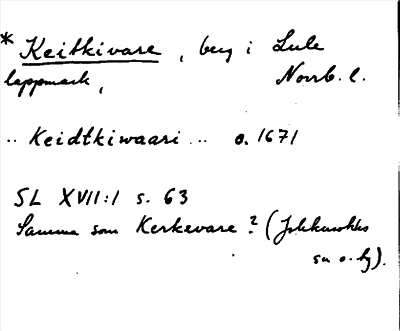 * Keitkivare, berg i Lule
lappmark, Norrb. l.
.. Keidtkiwaari .. o. 1671
SL XVII:1 s. 63
Samma som Kerkevare? (Jokkmokks
sn o. lg).